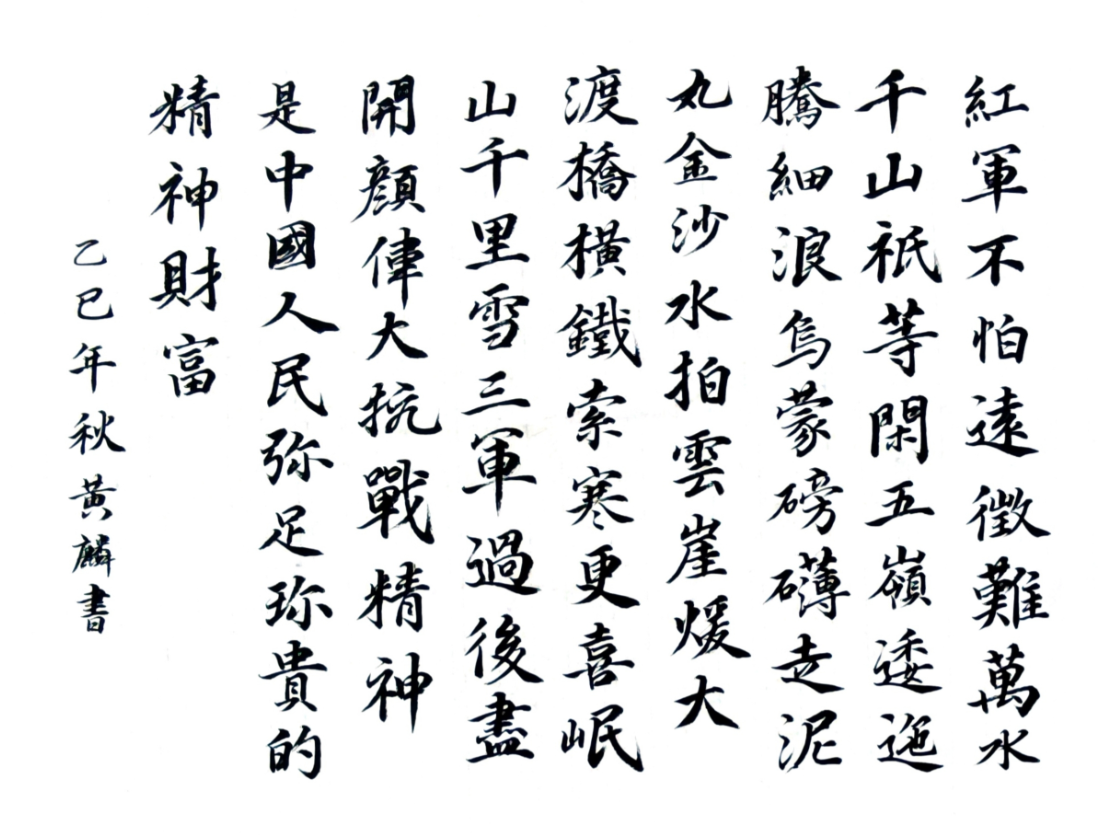 紅軍不怕遠徵難萬水
千山祇等閑五嶺逶迤
騰細浪烏蒙磅礴走泥
丸金沙水拍雲崖煖大
渡橋橫鐵索寒更喜岷
山千里雪三軍過後盡
開顔偉大抗戰精神
是中國人民弥足珎貴的
精神財富
乙巳年秋黄麟書